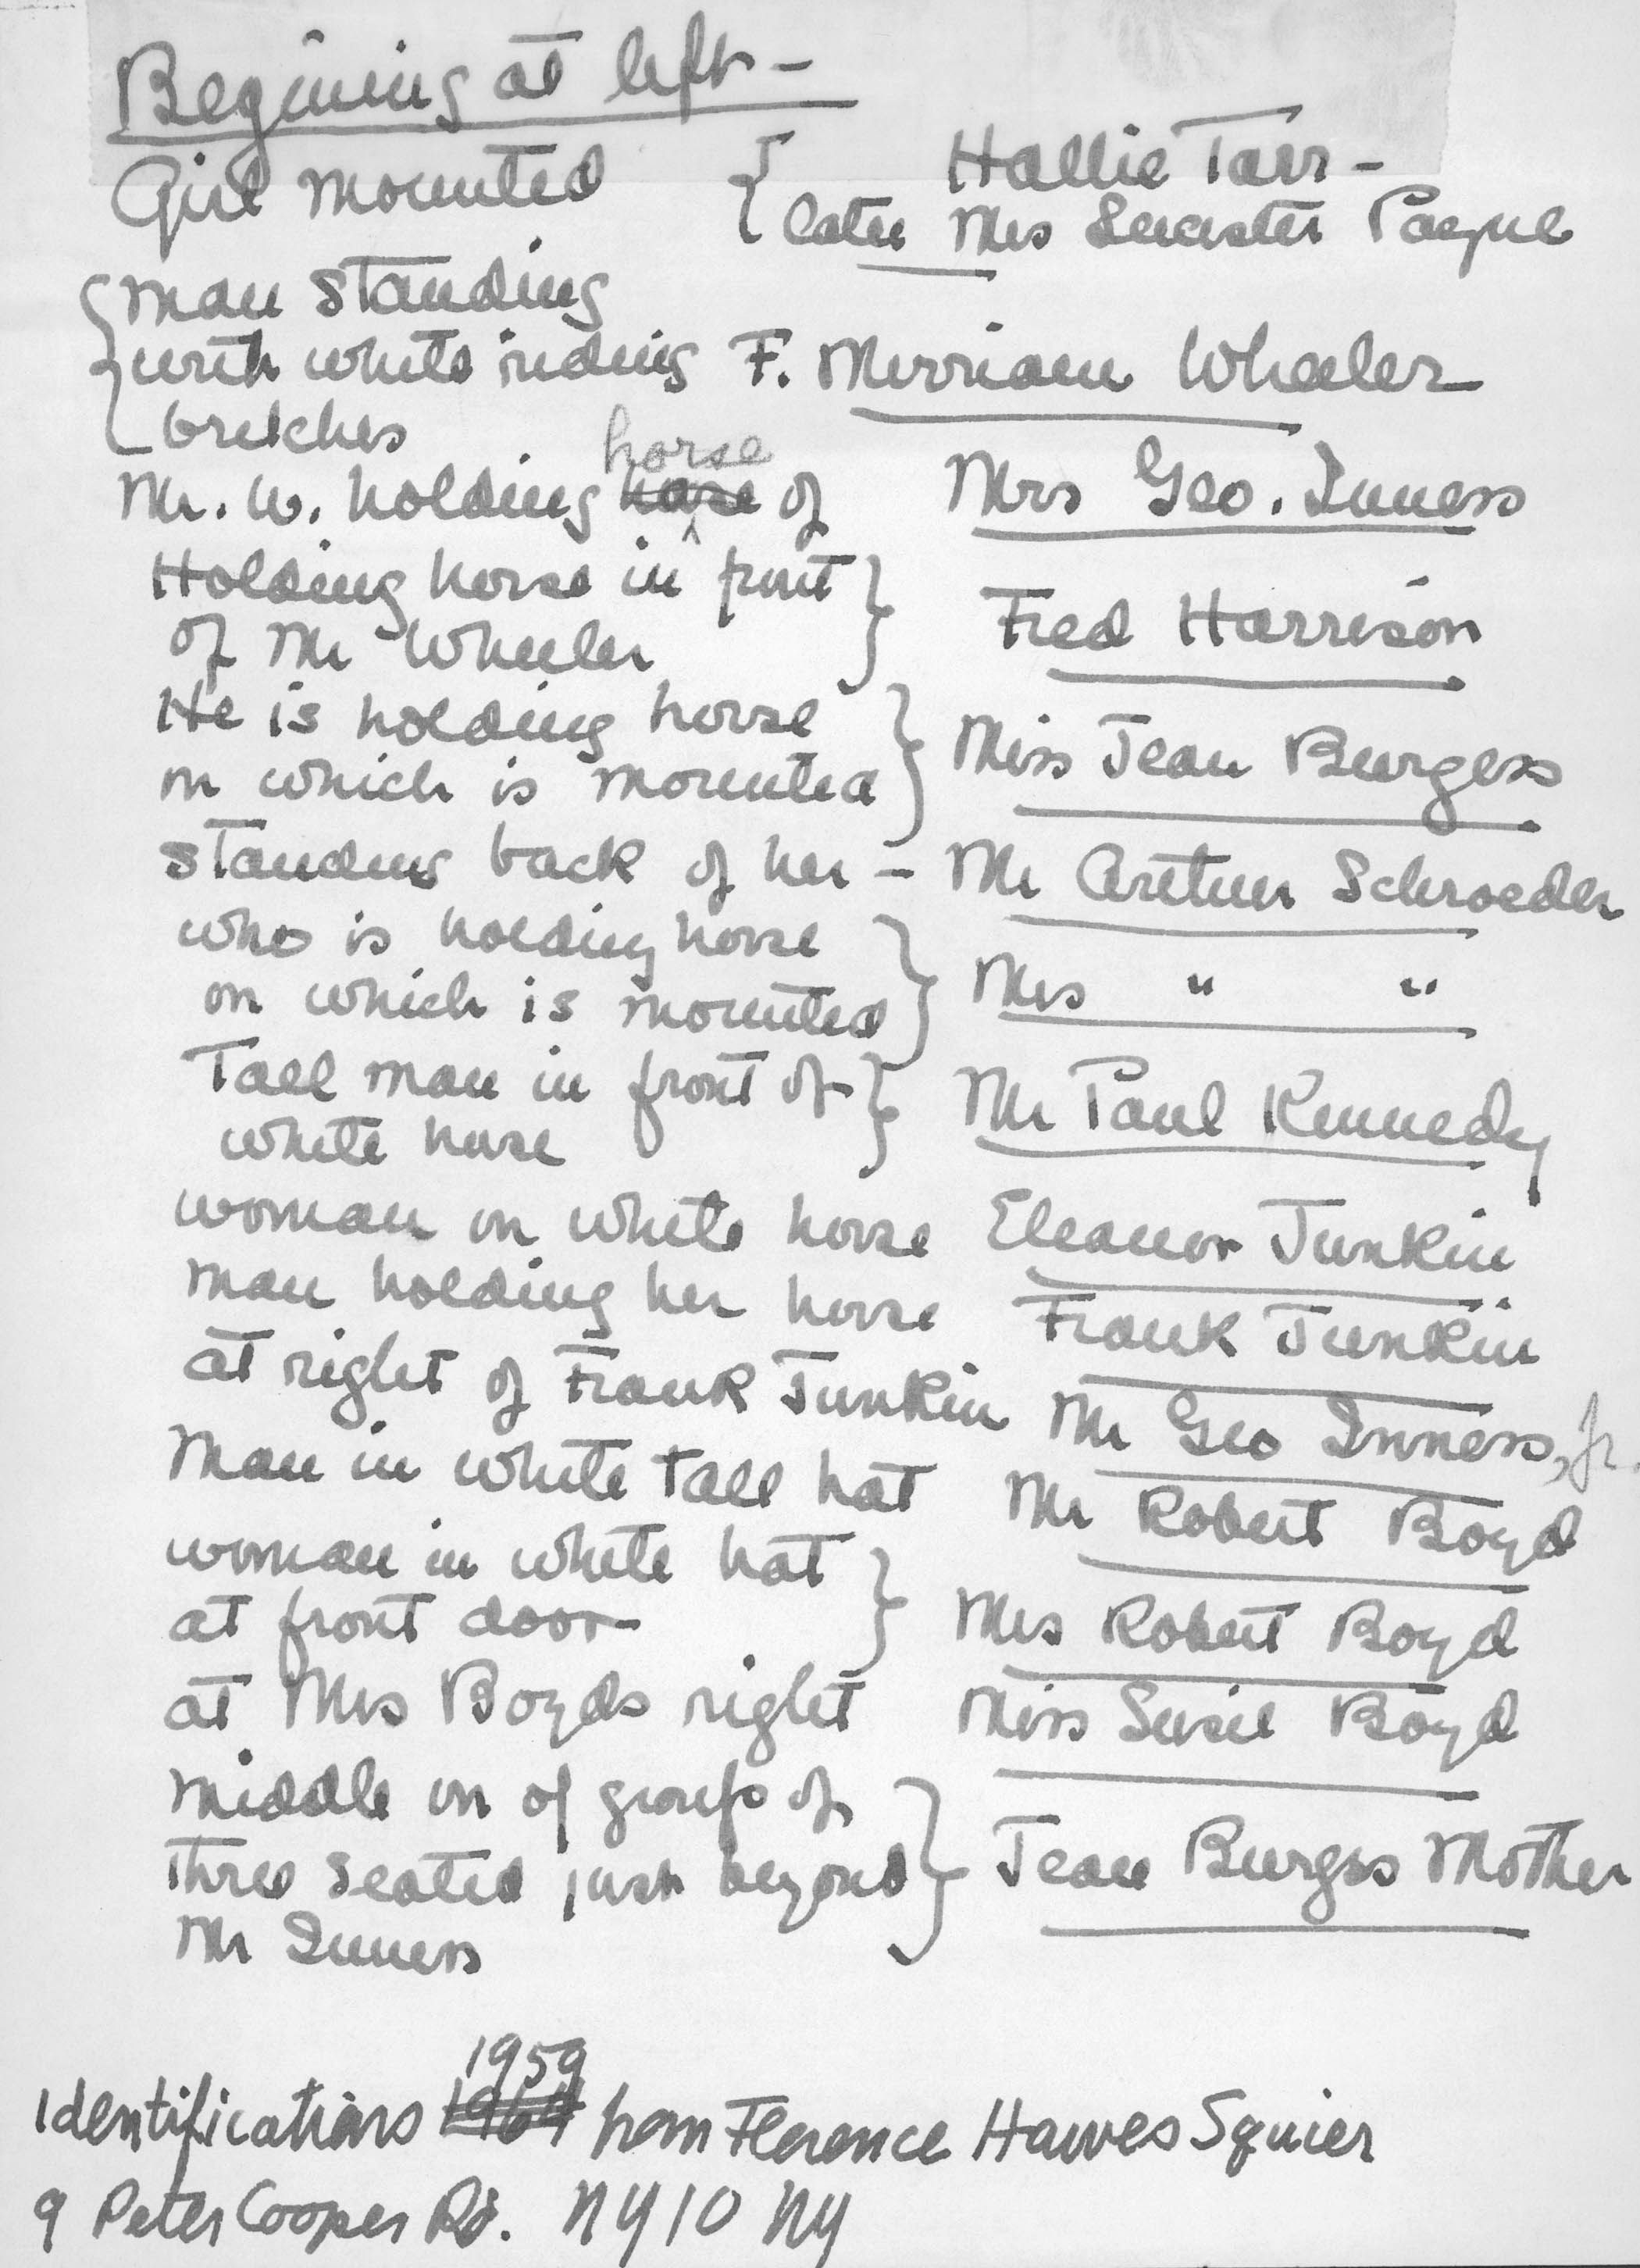 Begining at left -
Girl mounted { Hallie Tarr -
later Mrs Paque
{ man standing
with white riding F. Merriam Wheeler
bretches
Mr. W. holding horse of Mrs Geo. Inness
Holding horse in front } Fred Harrison
of Mr Wheeler
He is holding horse } Miss Jean Burgess
on which is mounted
standing back of her - Mr Arthur Schroeder
who is holding horse } Mrs " "
on which is mounted
Tall man in front of } Mr Paul Kennedy
white horse
woman on white horse Eleanor Junkin
man holding her horse Frank Junkin
at right of Frank Junkin Mr Geo Inness, Jr.
Man in white tall hat Mr Robert Boyd
woman in white hat } Mrs Robert Boyd
at front door
at Mrs Boyds right Miss Susie Boyd
middle on of group of } Jean Burgss Mother
three seated just beyond
Mr Inness
1959
Identifications 1964 from Florence Hawes Squier
9 Peter Cooper Rd. NY 10 NY